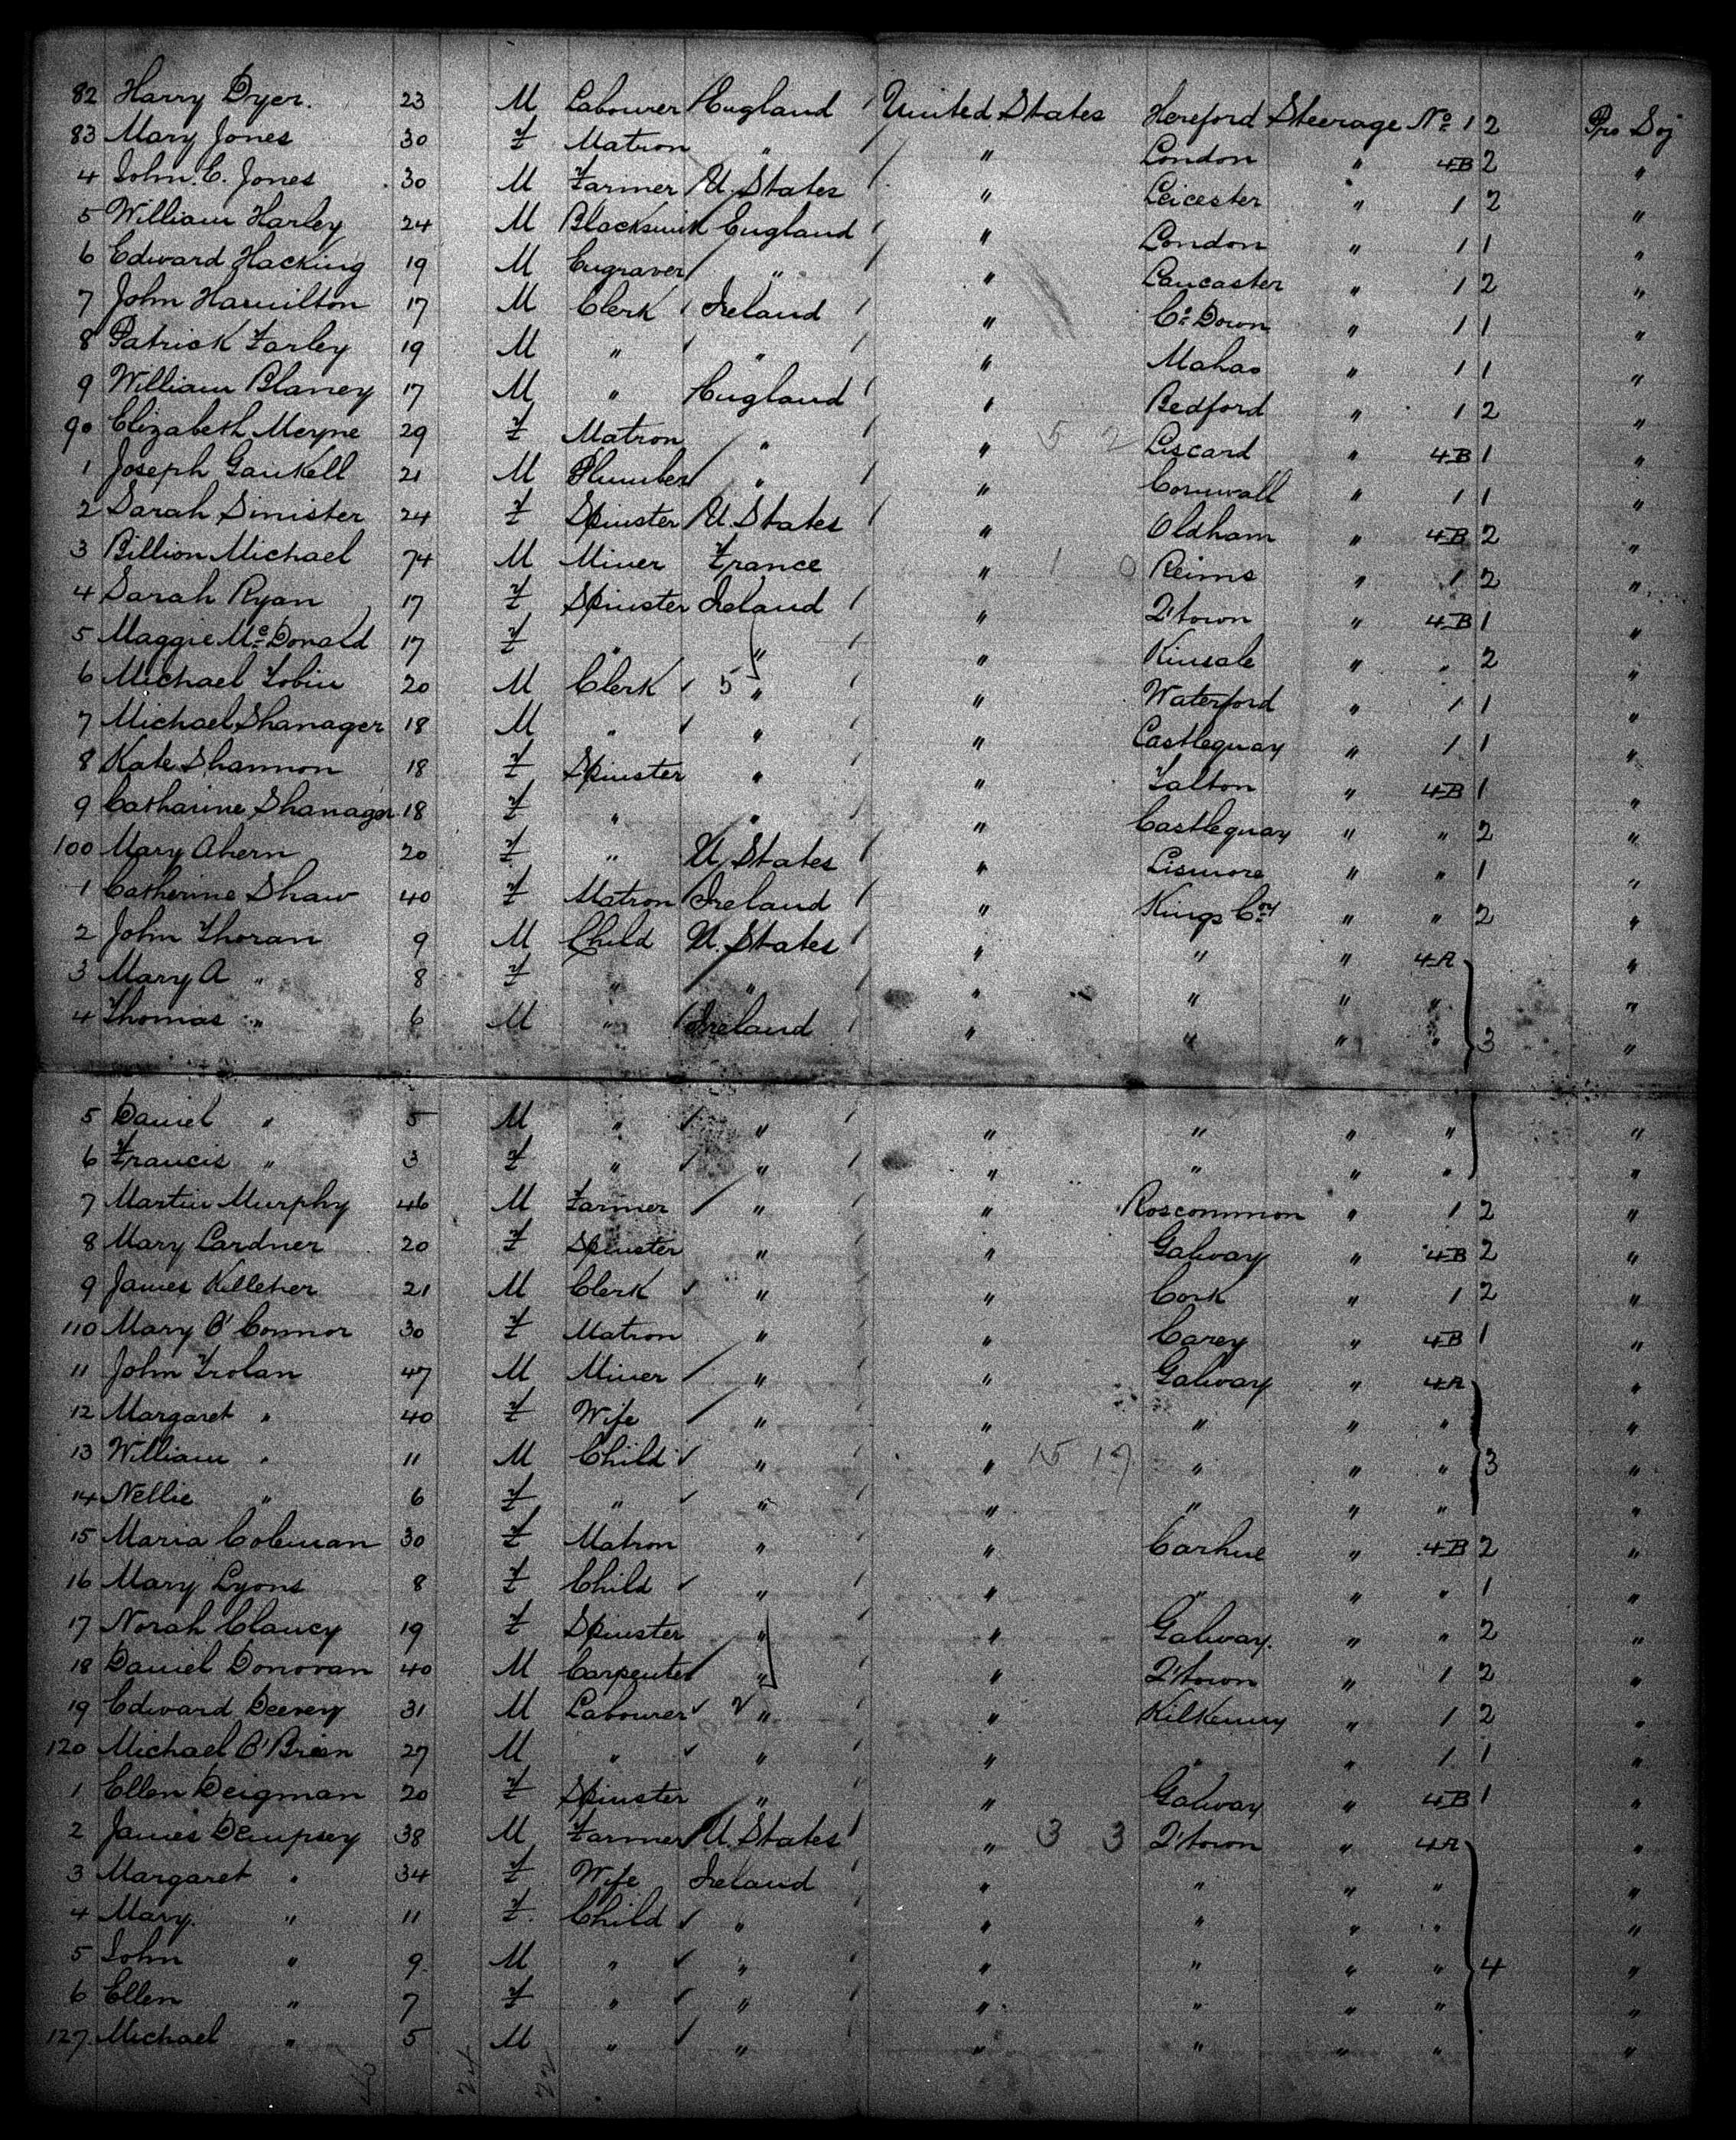 82 Harry Dyer. 23 M Labourer England United States Hereford Steerage No 1 2 Pro Soj
83 Mary Jones 30 F Matron " " London " 4B 2 "
4 John. C. Jones 30 M Farmer U. States " Leicester " 1 2 "
5 William Harley 24 M Blacksmith England " London " 1 1 "
6 Edward Hacking 19 M Engraver " " Lancaster " 1 2 "
7 John Hamilton 17 M Clerk Ireland " Co Down " 1 1 "
8 Patrick Farley 19 M " " " Mahao " 1 1 "
9 William Blaney 17 M " England " Bedford " 1 2 "
90 Elizabeth Meyne 29 F Matron " " 5 2 Liscard " 4B 1 "
1 Joseph Gaukell 21 M Plumber " " Cornwall " 1 1 "
2 Sarah Sinister 24 F Spinster U. States " Oldham " 4B 2 "
3 Billion Michael 74 M Miner France " 1 0 Reims " 1 2 "
4 Sarah Ryan 17 F Spinster Ireland " Q'town " 4B 1 "
5 Maggie Mc Donald 17 F " " " Kinsale " " 2 "
6 Michael Tobin 20 M Clerk 5 " " Waterford " 1 1 "
7 Michael Shanager 18 M " " " Castlequay " 1 1 "
8 Kate Shannon 18 F Spinster " " Falton " 4B 1 "
9 Catharine Shanager 18 F " " " Castlequay " " 2 "
100 Mary Ahern 20 F " U. States " Lismore " " 1 "
1 Catherine Shaw 40 F Matron Ireland " Kings Coy " " 2 "
2 John Thoran 9 M Child U. States " " " 4A "
3 Mary A " 8 F " " " " " " "
4 Thomas " 6 M " Ireland " " " " 3 "
5 Daniel " 5 M " " " " " " "
6 Francis " 3 F " " " " " " "
7 Martin Murphy 46 M Farmer " " Roscommon " 1 2 "
8 Mary Lardner 20 F Spinster " " Galway " 4B 2 "
9 James Killeher 21 M Clerk " " Cork " 1 2 "
110 Mary O'Connor 30 F Matron " " Carey " 4B 1 "
11 John Trolan 47 M Miner " " Galway " 4A "
12 Margaret " 40 F Wife " " " " " "
13 William " 11 M Child " " 15 17 " " " 3 "
14 Nellie " 6 F " " " " " " "
15 Maria Coleman 30 F Matron " " Carhue " 4B 2 "
16 Mary Lyons 8 F Child " " " " " 1 "
17 Norah Clancy 19 F Spinster " " Galway. " " 2 "
18 Daniel Donovan 40 M Carpenter " " Q'town " 1 2 "
19 Edward Deevey 31 M Labourer 2 " " Kilkenny " 1 2 "
120 Michael O'Brien 27 M " " " " " 1 1 "
1 Ellen Deigman 20 F Spinster " " Galway " 4B 1 "
2 James Dempsey 38 M Farmer U. States " 3 3 Q'town " 4A "
3 Margaret " 34 F Wife Ireland " " " " "
4 Mary. " 11 F Child " " " " " "
5 John " 9 M " " " " " " 4 "
6 Ellen " 7 F " " " " " " "
127. Michael " 5 M " " " " " " "
24 22